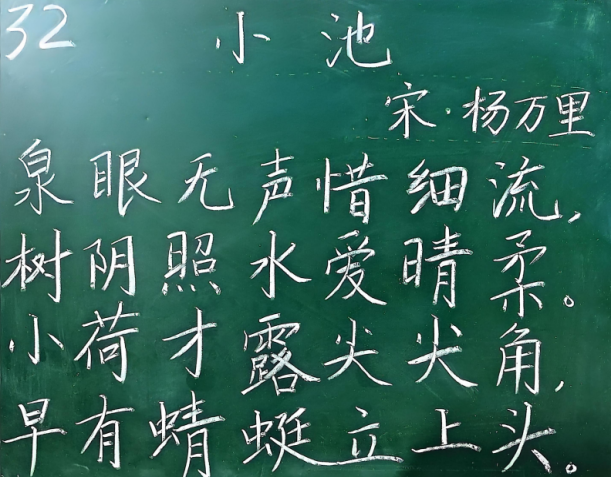 32
小池
宋·杨万里
泉眼无声惜细流,
树阴照水爱晴柔。
小荷才露尖尖角,
早有蜻蜓立上头。